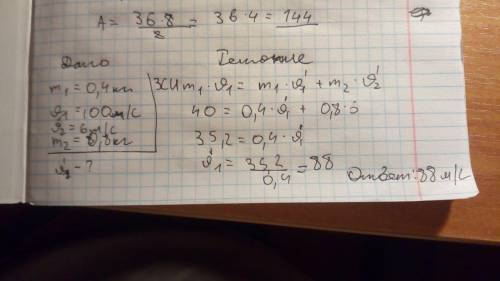 A = 36·8/2 = 36·4 = 144
Дано
Решение
m₁ = 0,4 кг
ϑ₁ = 100 м/с
ϑ₂ = 6 м/с
m₂ = 0,8 кг
ϑ₁' - ?
ЗСИ m₁·ϑ₁ = m₁·ϑ₁' + m₂·ϑ₂'
40 = 0,4·ϑ₁' + 0,8·6
35,2 = 0,4·ϑ₁'
ϑ₁' = 35,2/0,4 = 88
Ответ: 88 м/с